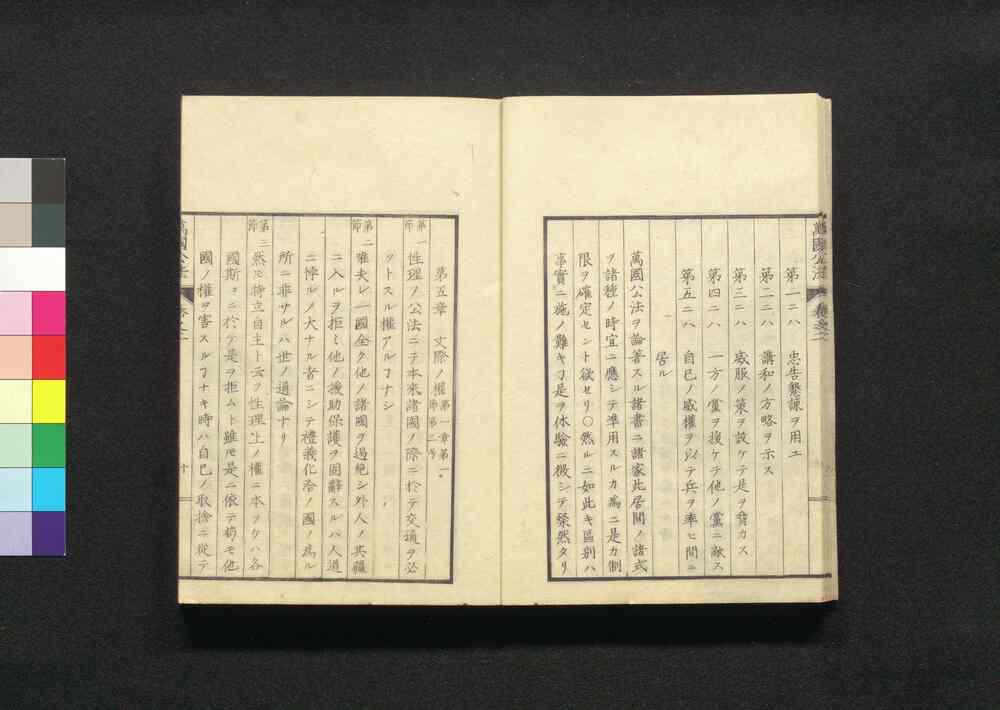 萬國公法 卷之二
第一ニハ 忠告懇諫ヲ用ユ
第二ニハ 講和ノ方略ヲ示ス
第三ニハ 威服ノ策ヲ設ケテ是ヲ脅カス
第四ニハ 一方ノ黨ヲ援ケテ他ノ黨ニ敵ス
第五ニハ 自己ノ威權ヲ以テ兵ヲ率ヒ間ニ
居ル
萬國公法ヲ論著スル諸書ニ諸家此居間ノ諸式
ヲ諸種ノ時宜ニ應シテ準用スルカ為ニ是カ制
限ヲ確定セント欲セリ〇然ルニ如此キ區別ハ
事實ニ施シ難キヿ是ヲ体驗ニ徴シテ粲然タリ
第五章 交際ノ權 第一章第一節第二号
第一節 性理ノ公法ニテ本來諸國ノ際ニ於テ交通ヲ必
ツトスル權アルヿナシ
第二節 雖夫レ一國全ク他ノ諸國ヲ遏絶シ外人ノ其疆
ニ入ルヲ拒ミ他ノ援助保護ヲ固辭スルハ人道
ニ悖ルノ大ナル者ニシテ禮義化洽ノ國ノ為ル
所ニ非サルハ世ノ通論ナリ
第三節 然モ特立自主ト云フ性理上ノ權ニ本ツケハ各
國斯ニ於テ是ヲ拒ムト雖モ是ニ依テ苟モ他
國ノ權ヲ害スルヿナキ時ハ自己ノ取捨ニ從テ
萬國公法 卷之二 十